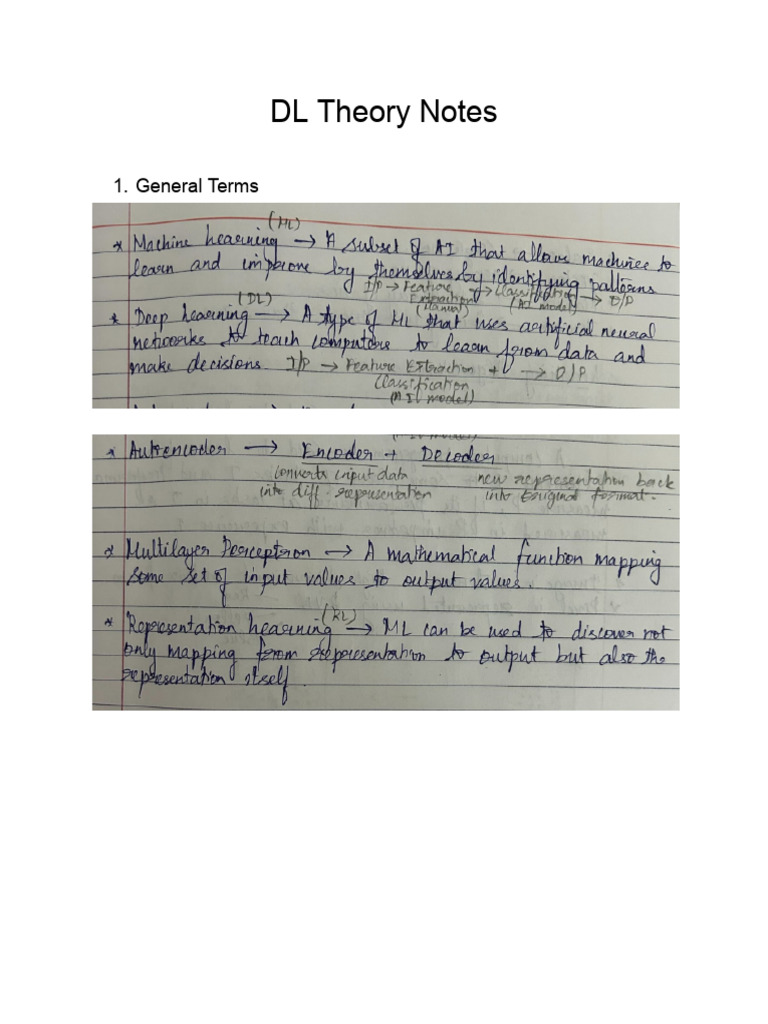 DL Theory Notes
1. General Terms
(ML)
* Machine Learning → A subset of AI that allows machines to
learn and improve by themselves by identifying patterns
I/P → Feature Extraction (Manual) → Classification (AI model) → O/P
(DL)
* Deep Learning → A type of ML that uses artificial neural
networks to teach computers to learn from data and
make decisions. I/P → Feature Extraction + → O/P
Classification
(AI model)
* Autoencoder → Encoder + Decoder
converts input data new representation back
into diff. representation into original format.
* Multilayer Perceptron → A mathematical function mapping
some set of input values to output values.
(RL)
* Representation Learning → ML can be used to discover not
only mapping from representation to output but also the
representation itself.